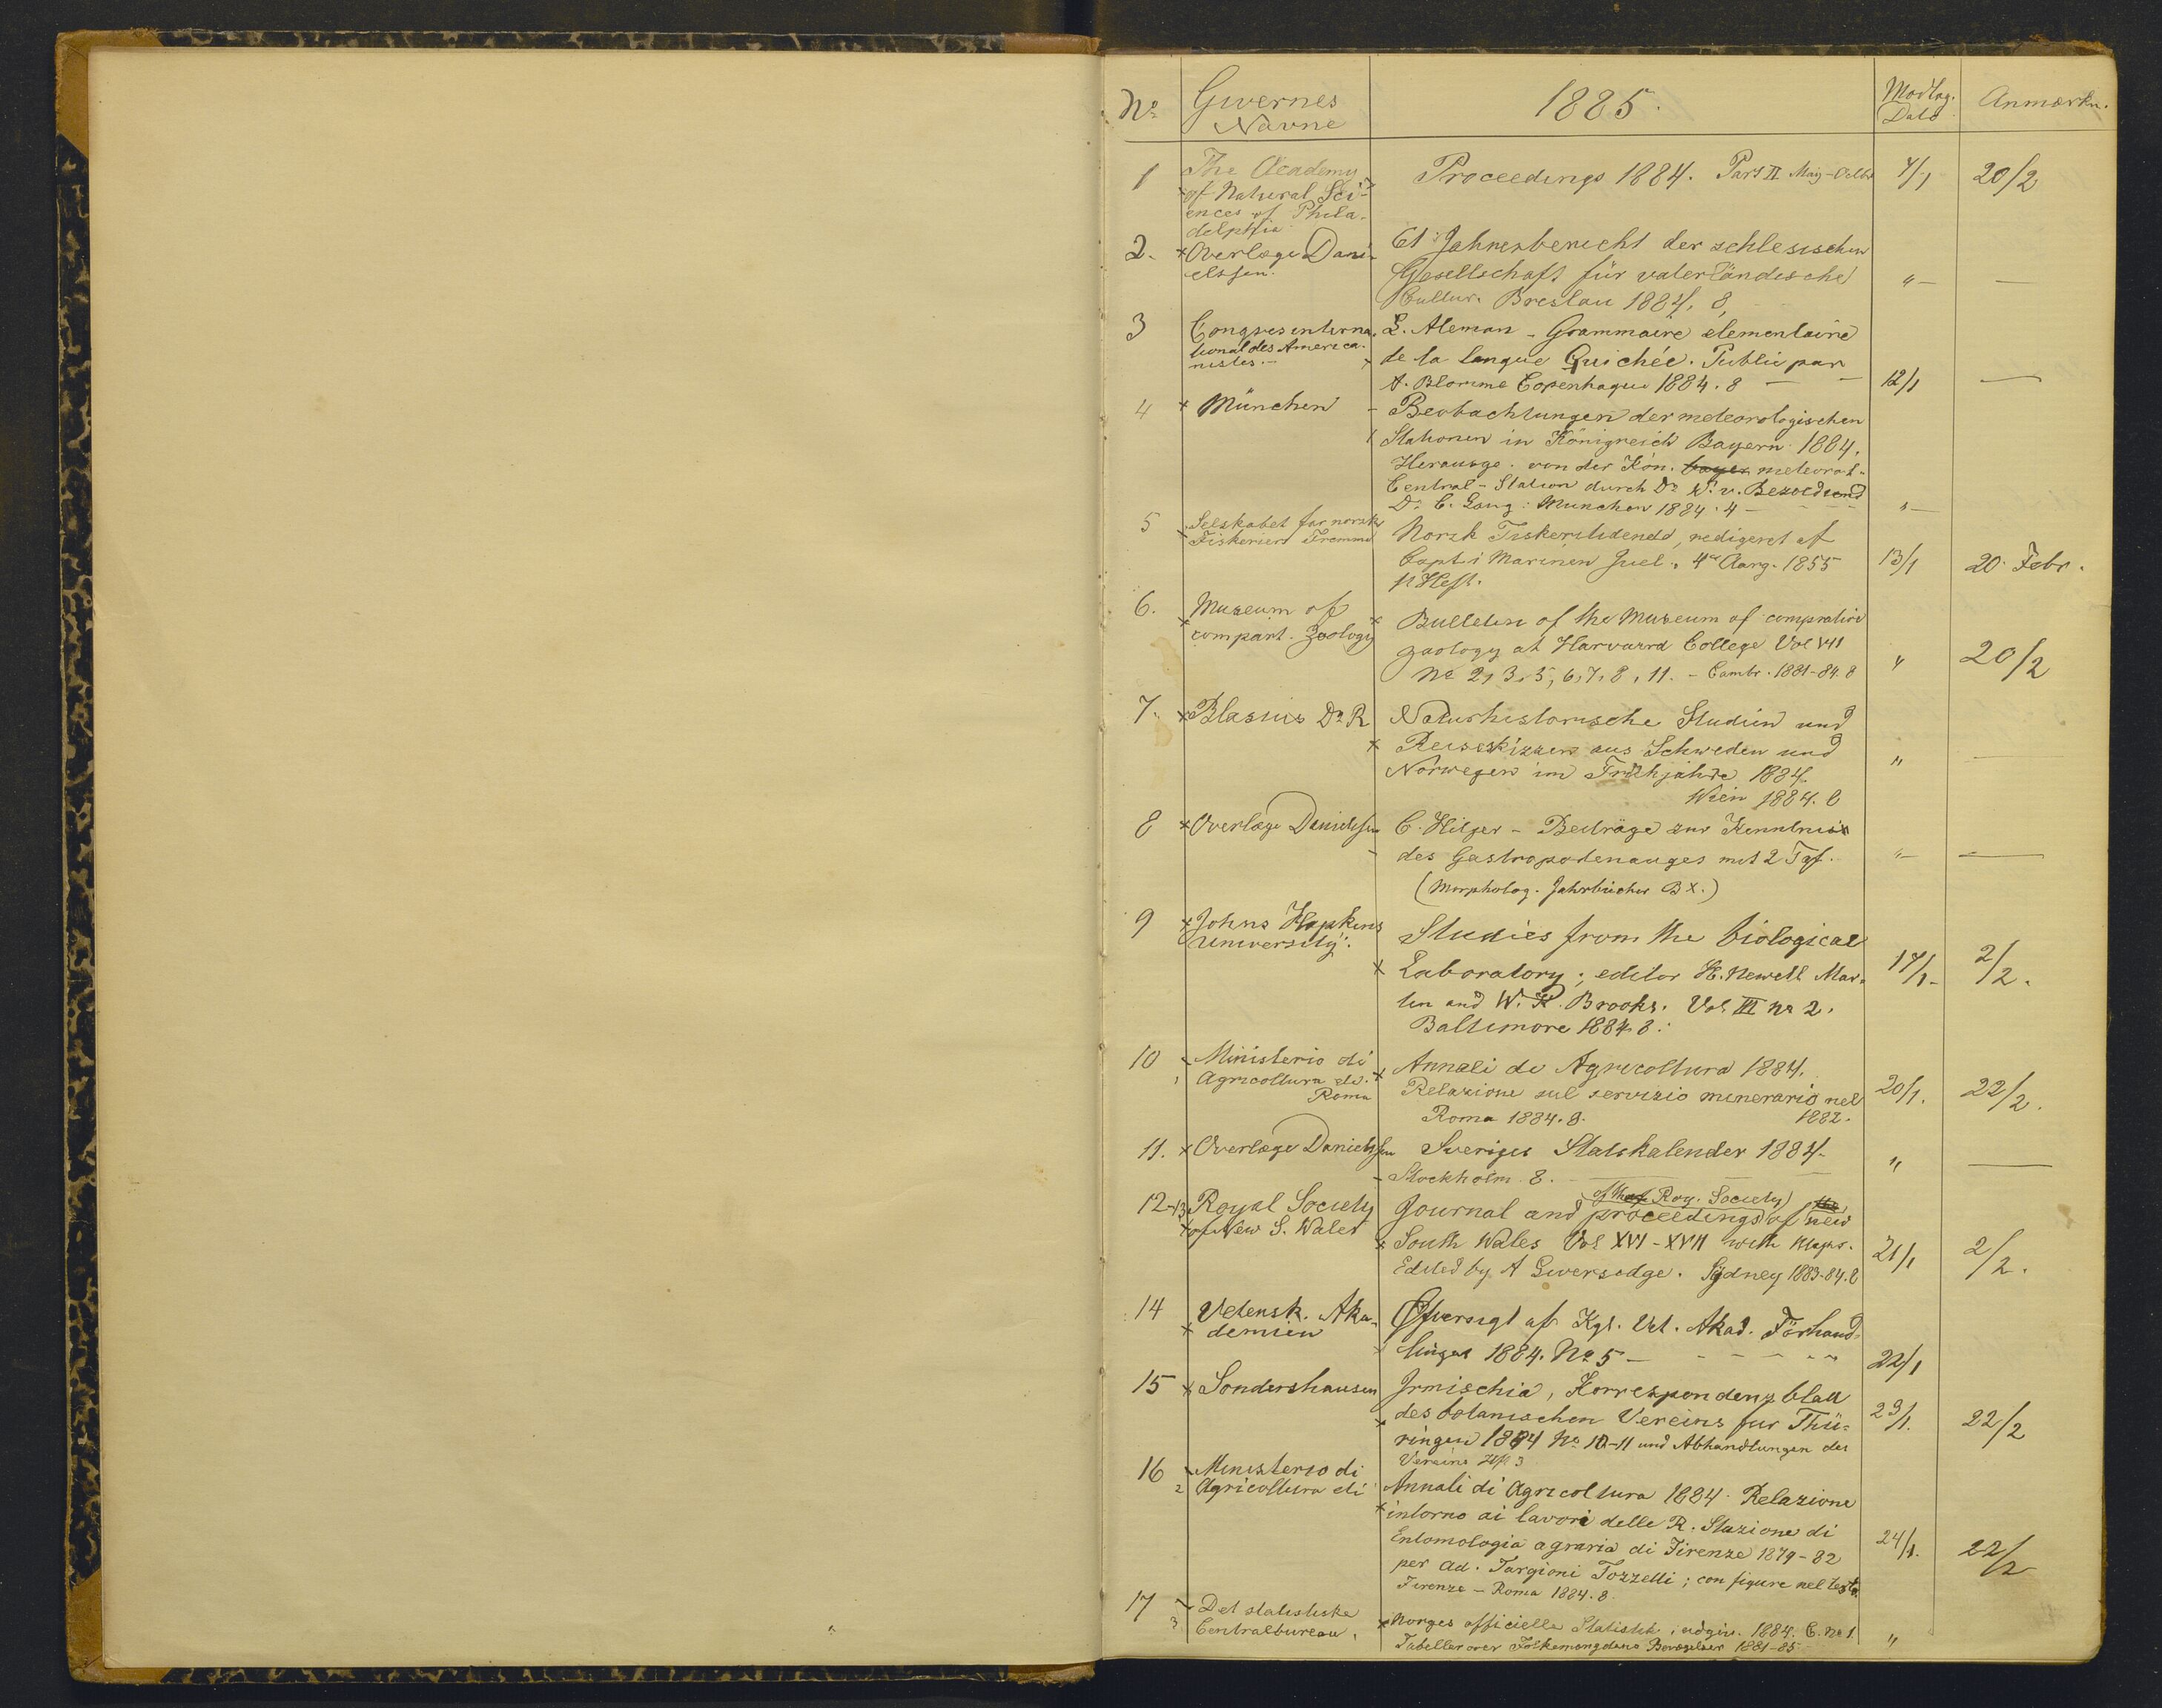 No Givernes Navne 1885. Modtag. Dato Anmærkn.
1 The Academy Proceedings 1884. Part II May-Octbr 7/1 20/2
of Natural Sci-
ences of Phila-
delphia
2. Overlæge Dani- 61 Jahresbericht der schlesischen
elssen. Gesellschaft für vaterländische " —
Cultur. Breslau 1884. 8,
3 Congres interna- L. Aleman - Grammaire élementaire
tional des America- de la langue Quichée. Publié par
nistes. - A. Blomme Copenhague 1884. 8 — 12/1 —
4 München - Beobachtungen der meteorologischen
Stationen in Königreich Bayern 1884.
Herausge. von der Kön. bayer. meteorol-
Central-Station durch Dr W. v. Bezold und
Dr C. Lang: München 1884. 4 — "
5 Selskabet for norske Norsk Fiskeritidende, redigeret af
Fiskeriers Fremme Capt. i Marinen Juel. 4de Aarg. 1855 13/1 20 Febr.
1t Heft.
6. Museum of Bulletin of the Museum of comprative
compart. Zoology zoology at Harvard College Vol VII
No 2, 3, 5, 6, 7, 8, 11. - Cambr. 1881-84. 8 " 20/2
7. Blasius Dr R Naturhistorische Studien und
Reiseskizzen aus Schweden und "
Norwegen im Frühjahre 1884.
Wien 1884. 8
8 Overlæge Danielssen C. Hilger - Beiträge zur Kenntniss
des Gastropodenauges mit 2 Taf. " —
(Morpholog. Jahrbücher B X.)
9 Johns Hopkins Studies from the biological
University. Laboratory; editor H. Newell Mar- 17/1 2/2.
tin and W. K. Brooks. Vol III No 2.
Baltimore 1884. 8.
10 Ministerio di Annali di Agricoltura 1884.
Agricoltura etc. Relazione sul servizio minerario nel 20/1. 22/2.
Roma Roma 1884. 8. 1882.
11. Overlæge Danielssen Sveriges Statskalender 1884 " —
- Stockholm. 8.
of the Roy. Society
12-13 Royal Society Journal and proceedings of the new
of New S. Wales South Wales Vol XVI-XVII with Maps. 21/1 2/2.
Edited by A Liversedge. Sydney 1883-84. 8
14 Vetensk. Aka- Öfversigt af Kgl. Vet. Akad. Förhand-
demien lingar 1884. No 5 — 22/1
15 Sondershausen Irmischia, Korrespondenzblatt
des botanischen Vereins für Thü- 23/1. 22/2
ringen 1884 No 10-11 und Abhandlungen des
Vereins Hft 3
16 Ministerio di Annali di Agricoltura 1884. Relazione
Agricoltura di intorno ai lavori delle R. Stazione di
Entomologia agraria di Firenze 1879-82 24/1. 22/2
per Ad. Targioni Tozzetti; con figure nel testo
Firenze - Roma 1884. 8.
17 Det statistiske Norges officielle Statistik, udgiv. 1884. C. No 1
Centralbureau. Tabeller over Folkemængdens Bevægelser 1881-85 "